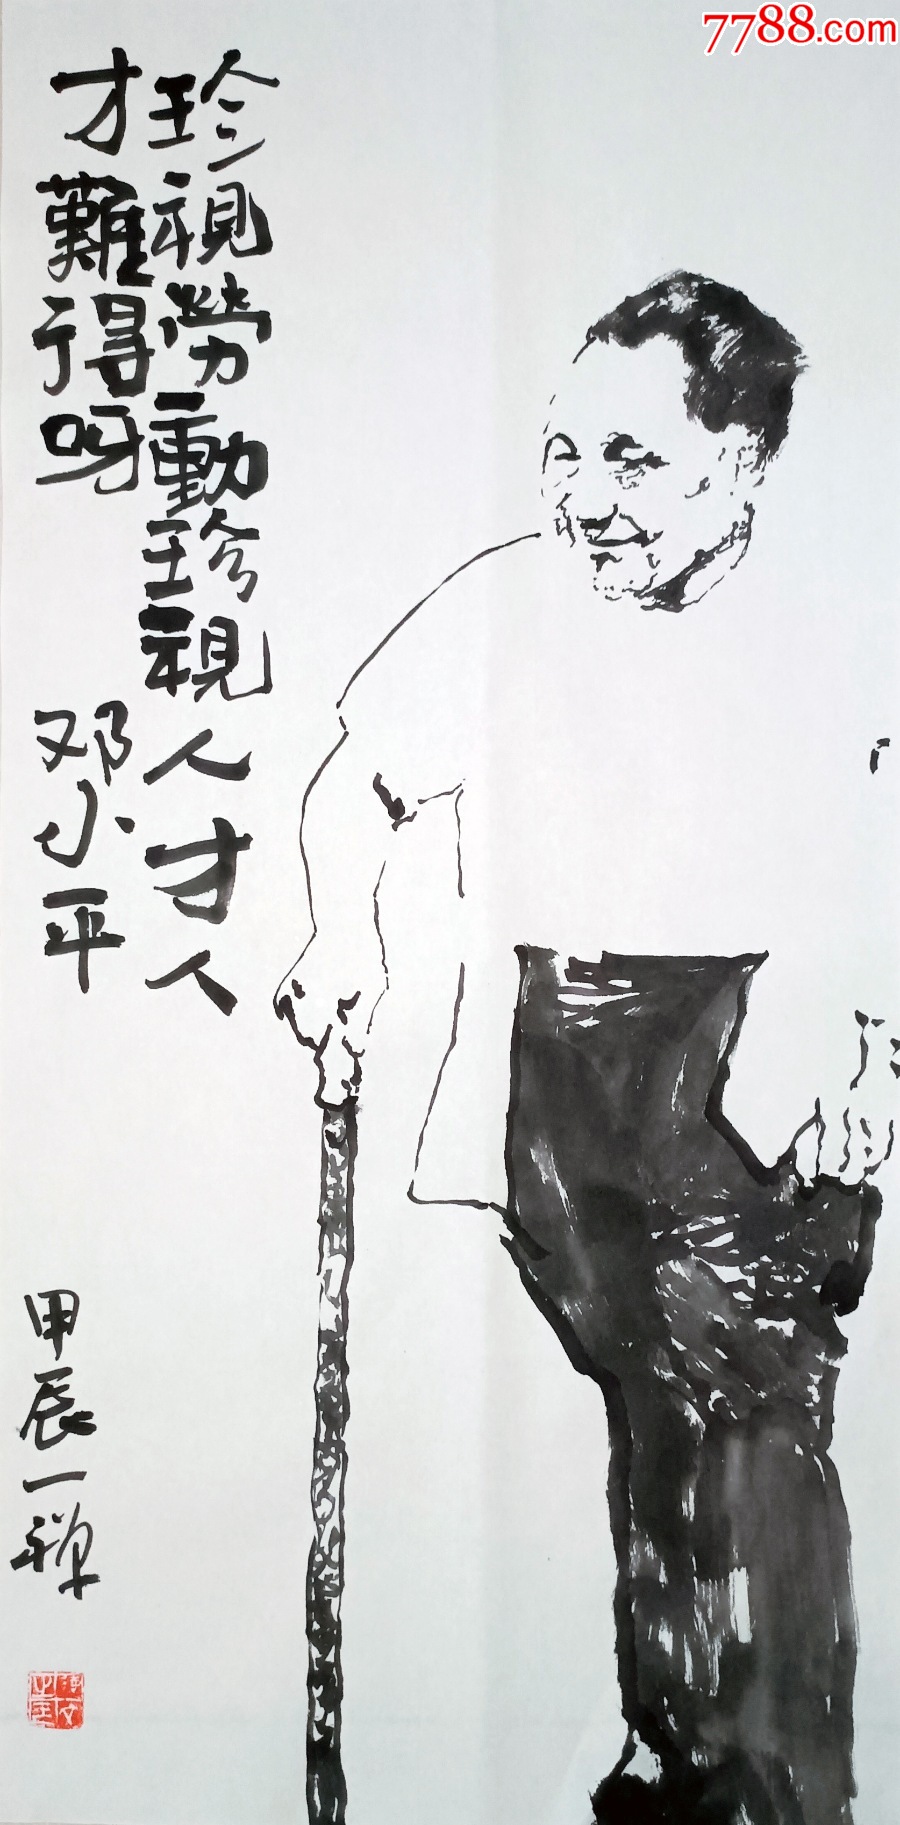 7788.com
珍視勞動珍視人才人
才難得呀
邓小平
甲辰一禅